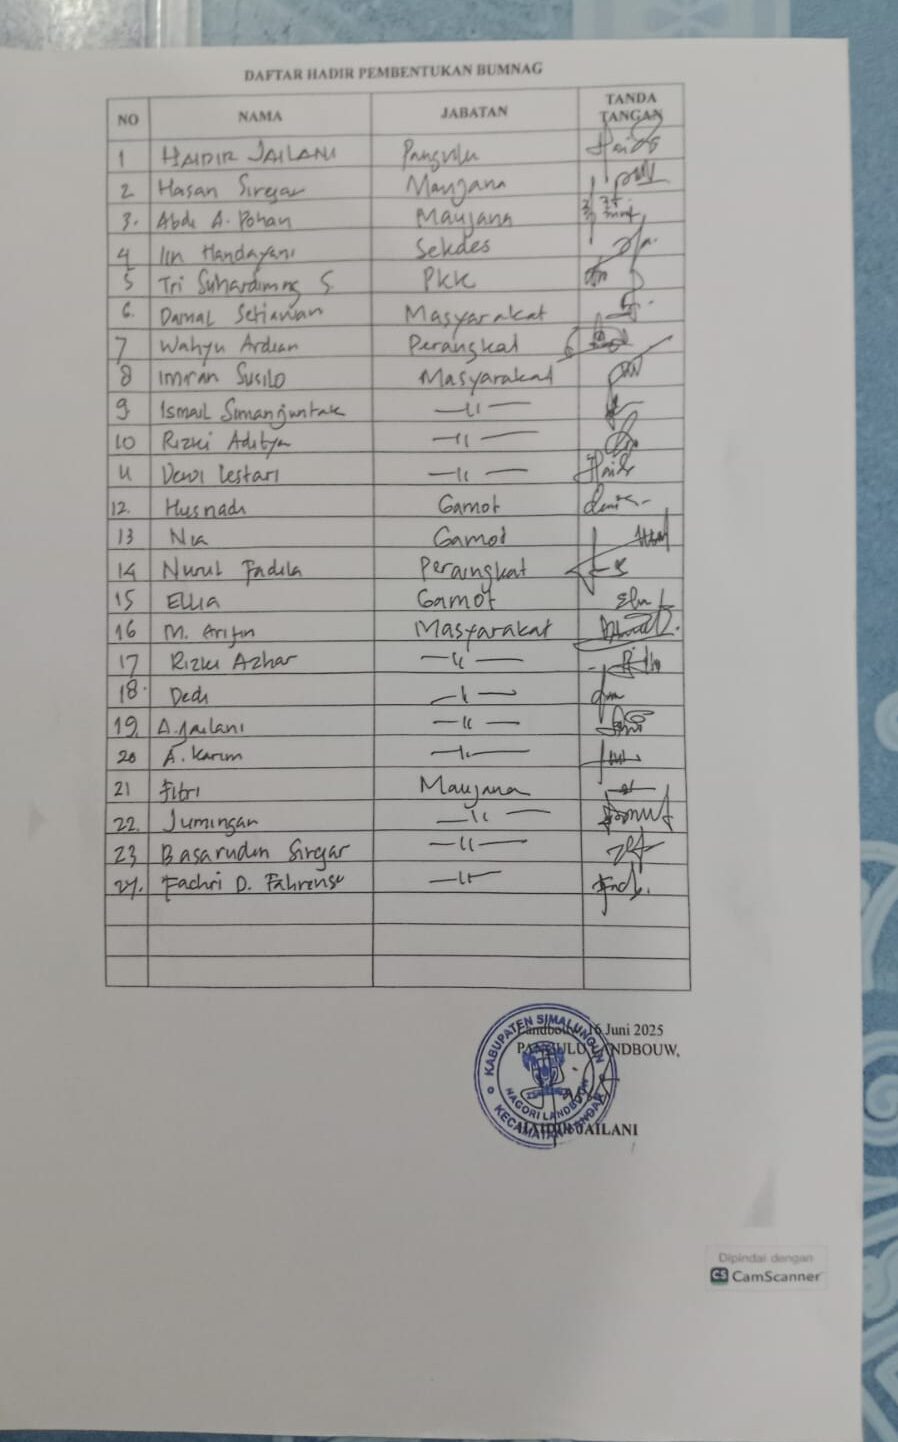 DAFTAR HADIR PEMBENTUKAN BUMNAG
NO NAMA JABATAN TANDA TANGAN
1 HAIDIR JAILANI Pangulu
2 Hasan Siregar Maujana
3. Abdi A. Pohan Maujana
4 Iin Handayani Sekdes
5 Tri Suhardining S PKK
6. Damal Setiawan Masyarakat
7 Wahyu Ardian Perangkat
8 Imran Susilo Masyarakat
9 Ismail Simanjuntak —〃—
10 Rizki Aditya —〃—
11 Dewi Lestari —〃—
12. Husnadi Gamot
13 Nia Gamot
14 Nurul Fadila Perangkat
15 Ellia Gamot
16 M. Arifin Masyarakat
17 Rizki Azhar —〃—
18. Dedi —〃—
19. A. Jailani —〃—
20 A. Karim —〃—
21 Fitri Maujana
22. Jumingan —〃—
23 Basarudin Siregar —〃—
24. Fachri D. Fahrensi —〃—
Landbouw, 16 Juni 2025
PANGULU LANDBOUW,
KABUPATEN SIMALUNGUN
NAGORI LANDBOUW
KECAMATAN
HAIDIR JAILANI
Dipindai dengan
CS CamScanner